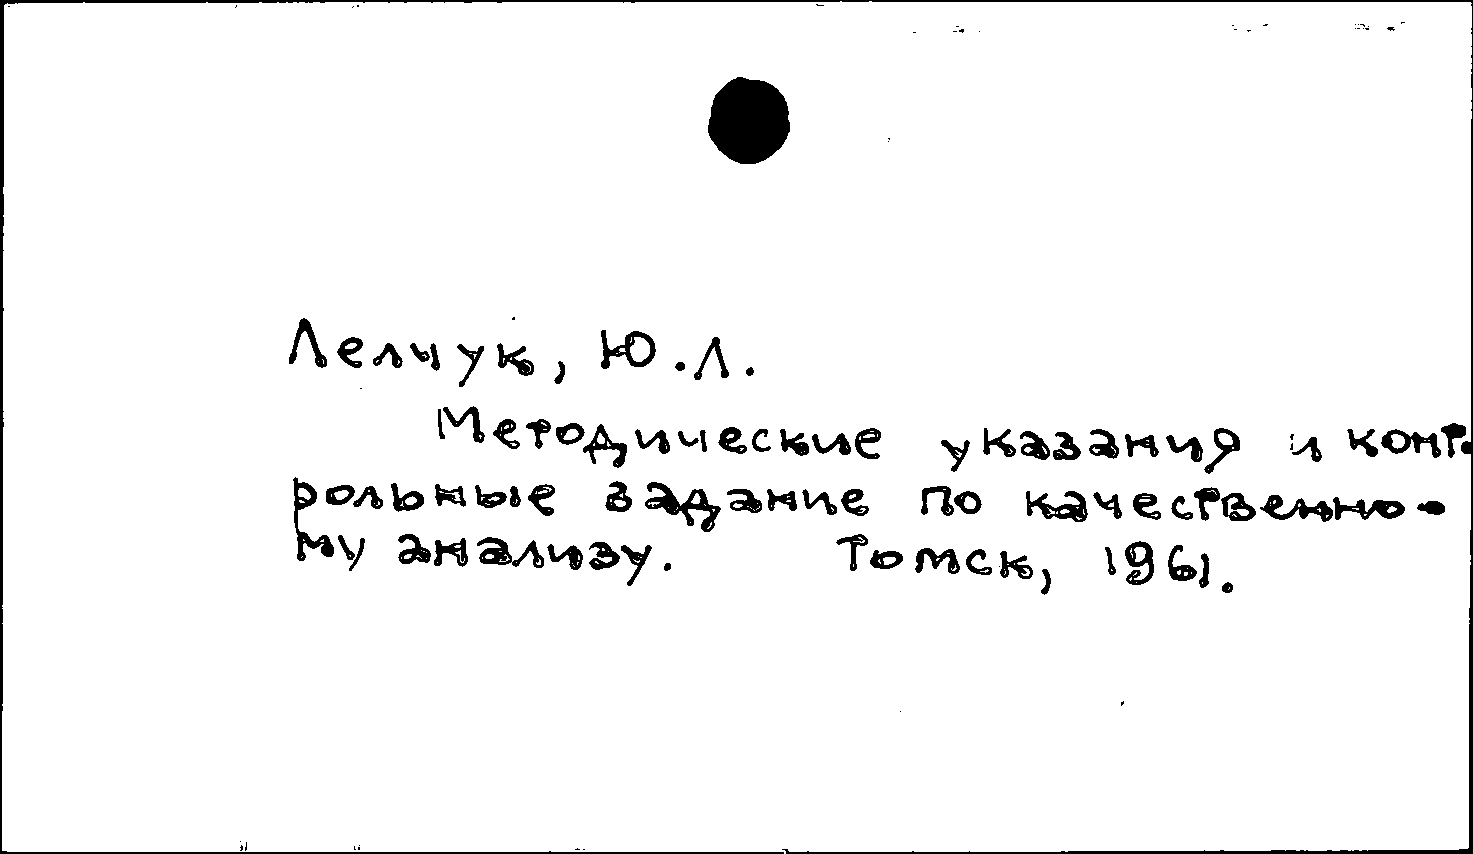 Лелчук, Ю.Л.
Методические указания и конт-
рольные задание по качественно-
му анализу. Томск, 1961.